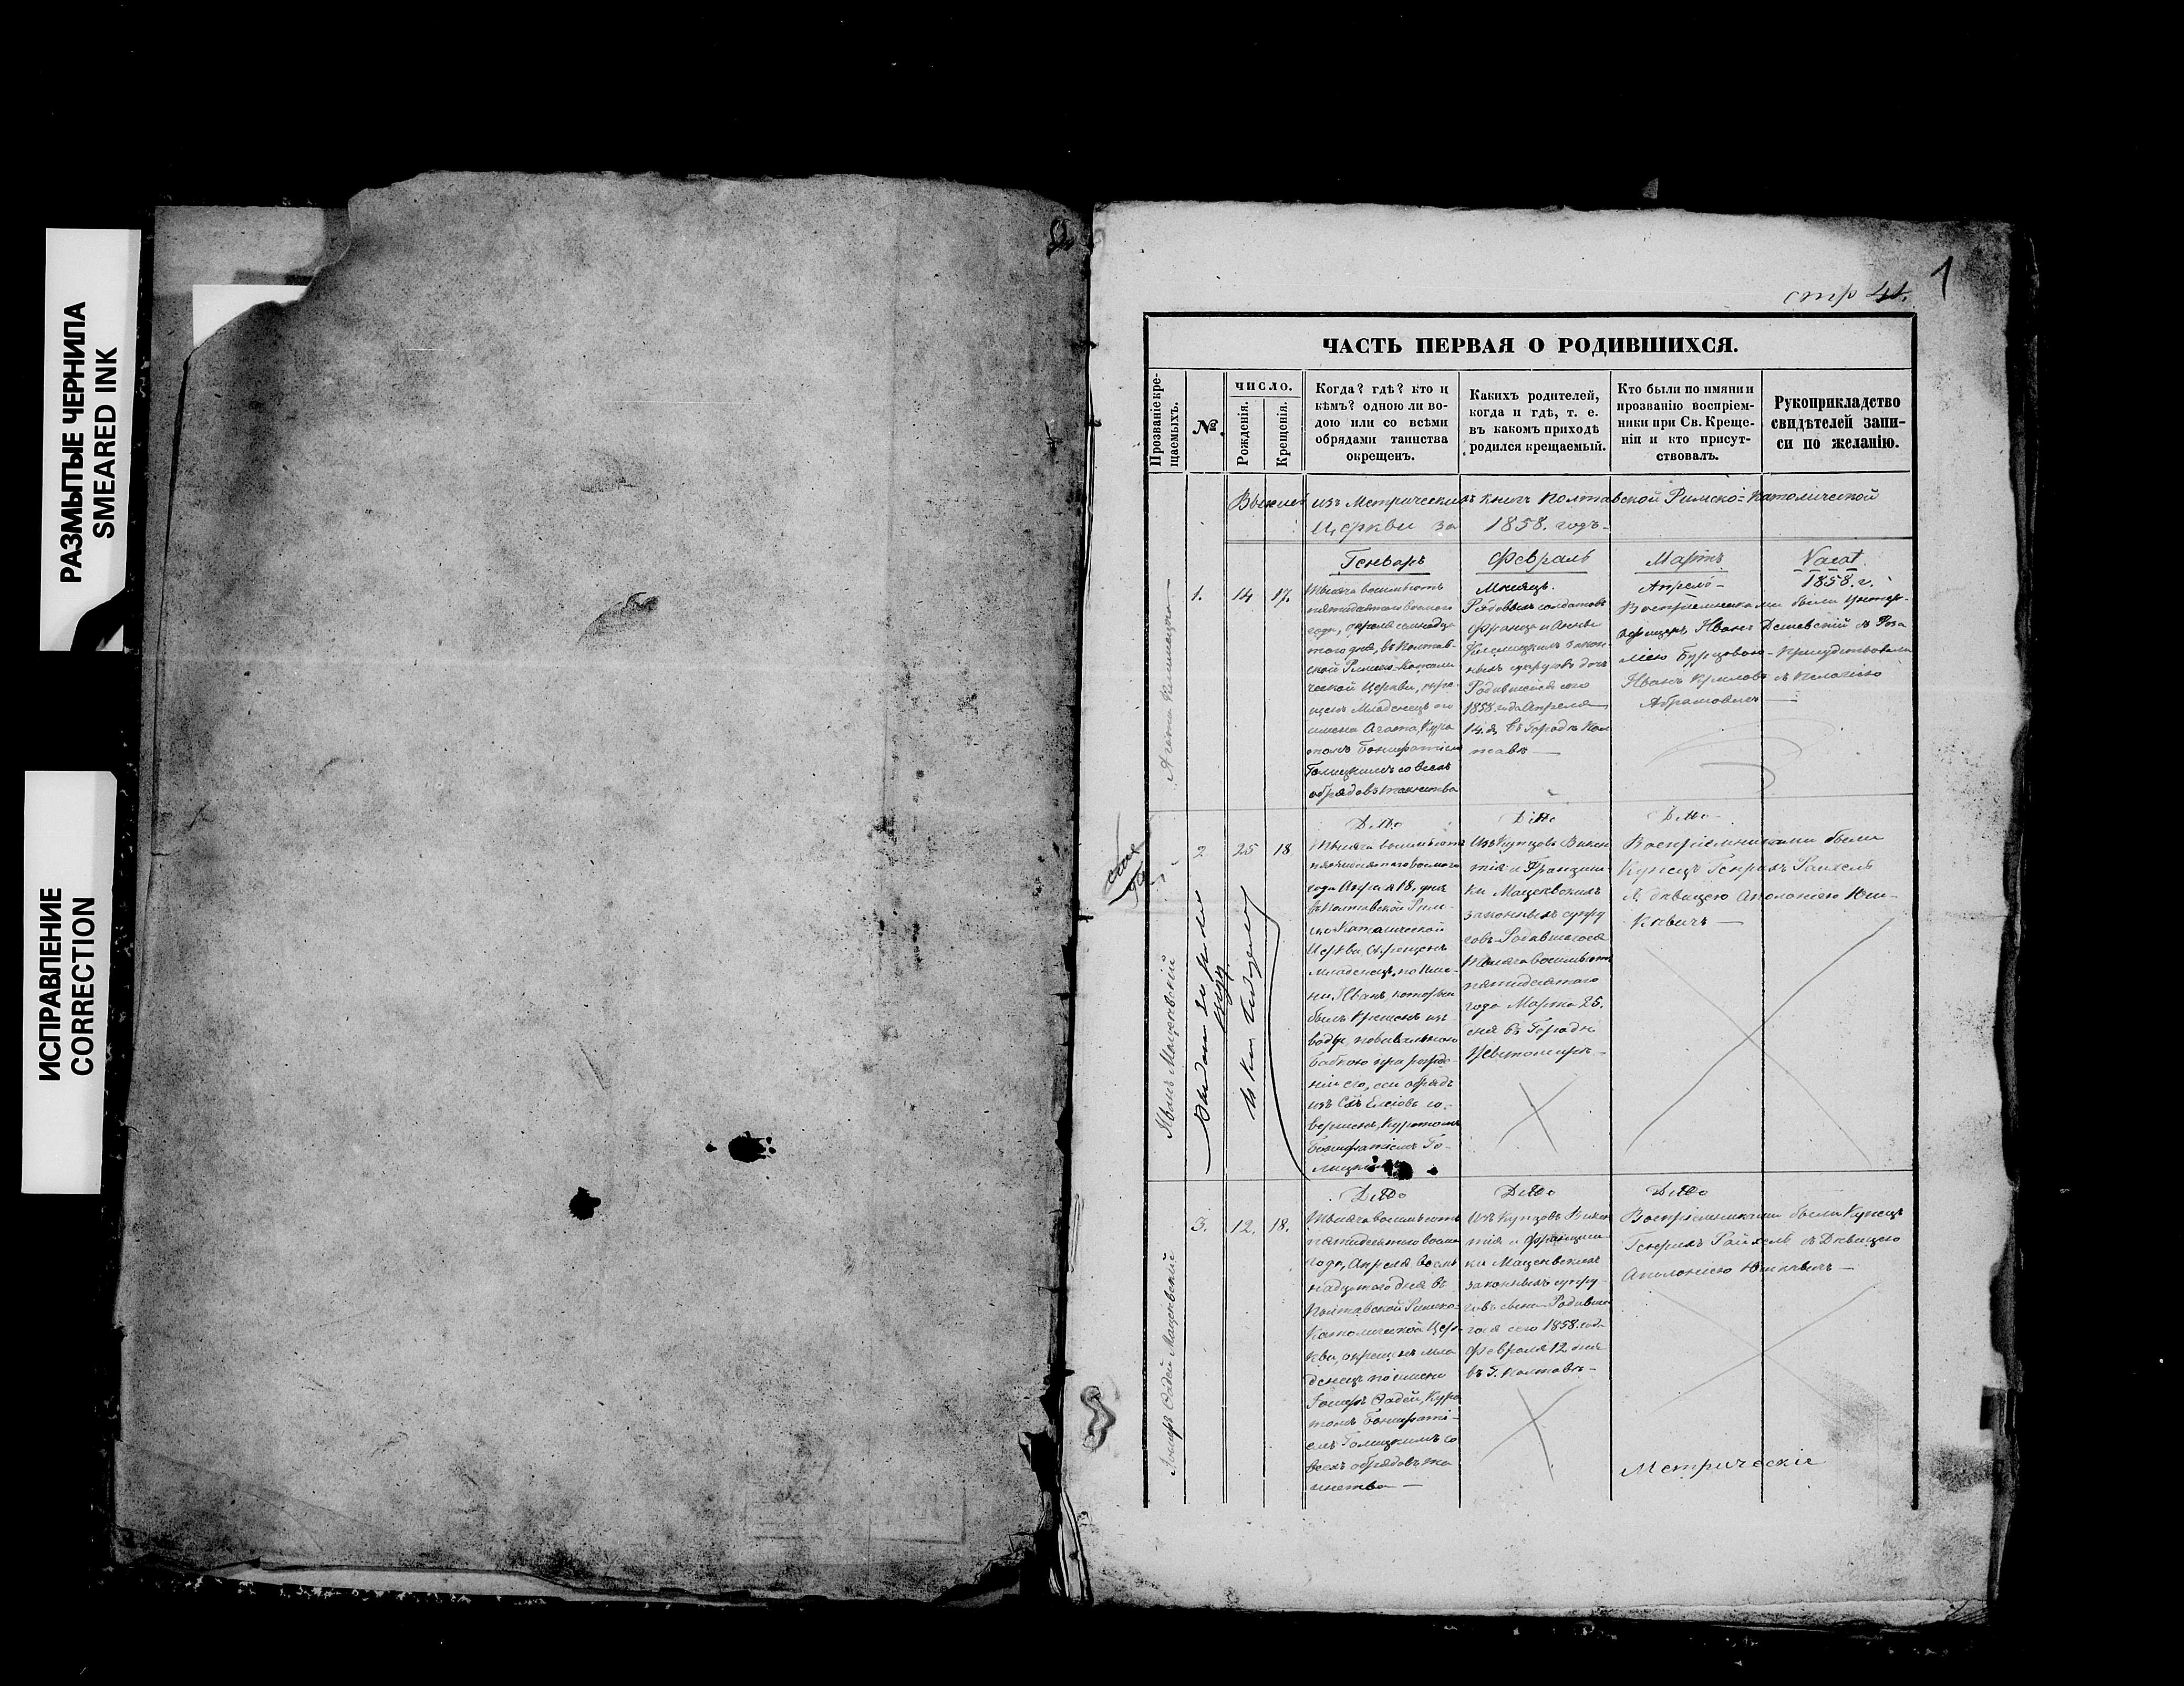 РАЗМЫТЫЕ ЧЕРНИЛА
SMEARED INK
ИСПРАВЛЕНИЕ
CORRECTION
1
стр 41.
ЧАСТЬ ПЕРВАЯ О РОДИВШИХСЯ.
Прозваніе кре-
щаемыхъ.
№
ЧИСЛО.
Рожденія.
Крещенія.
Когда? гдѣ? кто и
кѣмъ? одною ли во-
дою или со всѣми
обрядами таинства
окрещенъ.
Какихъ родителей,
когда и гдѣ, т. е.
въ какомъ приходѣ
родился крещаемый.
Кто были по имяни и
прозванію воспріем-
ники при Св. Креще-
ніи и кто присут-
ствовалъ.
Рукоприкладство
свидѣтелей запи-
си по желанію.
изъ Метрическихъ книгъ Полтавской Римско=Католической
Церкви за 1858. годъ
Генварь
Февраль
Мартъ
Vacat.
1858. г.
1.
14
17.
Тысяча восемьсотъ
пятьдесятъ восьмого
года, апреля семнадца
того дня, въ Полтав-
ской Римско-Католи
ческой Церкви, окре-
щенъ Младенецъ по
имени Агата, Кура
томъ Бонифатіемъ
Голицкимъ со всехъ
обрядовъ таинства
Месяцъ.
Рядовыхъ солдатовъ
Франца и Анны
закон-
ныхъ супруговъ дочь
Родившейся сего
1858. года Апреля
14. д. въ Городѣ Пол
тавѣ
Апрель
Воспріемниками были Унтер-
офицеръ Иванъ
Присудствовали
Иванъ
2
25
18
Иванъ Мацеевскій
Дітто
Тысяча восемьсотъ
пятьдесятаго восьмого
года Апреля 18. дня
въ Полтавской Рим-
ско Католической
Церкви, окрещенъ
Младенецъ, по име-
ни, Иванъ, который
былъ крещенъ изъ
воды, повивальною
бабкою при рожде-
ніи его, обрядъ
изъ Св. Елеовъ со-
вершенъ, Куратомъ
Бонифатіемъ Го-
лицкимъ
Дітто
Изъ Купцовъ Викен
тія и Франциш-
ки Мацеевскихъ
законныхъ супру
говъ Родившагося
Тысяча восемьсотъ
пятьдесятаго
года Марта 25.
дня въ Городѣ
Дітто
Воспріемниками были
Купецъ Генрихъ Райхель
съ Девицею Аполоніею Юш-
кевичъ
3.
12.
18.
Іосифъ Фадей Мацеевскій
Дітто
Тысяча восемьсотъ
пятьдесятаго восьми
года, Апреля восем
надцатого дня въ
Полтавской Римско-
Католической Цер-
кви, окрещенъ мла
денецъ по имени
Іосифъ Фадей, Кура
томъ Бонифаті-
емъ Голицкимъ со
всехъ обрядовъ та
инства
Дітто
Изъ Купцовъ Викен
тія и Францишш
ки Мацеевскихъ
законныхъ супру-
говъ сынъ Родивша
гося сего 1858. года
Февраля 12 дня
въ Г. Полтавѣ
Дітто
Воспріемниками были Купецъ
Генрихъ Райхель съ Девицею
Аполоніею Юшкевичъ
Метрическіе